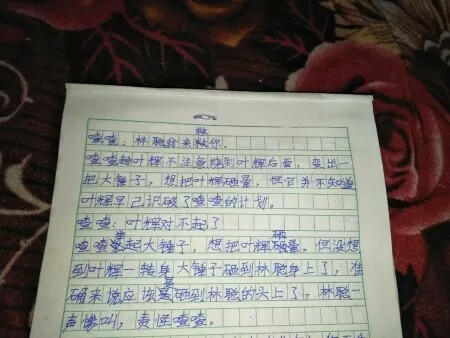 喳喳：林聪我来救你。
喳喳趁叶辉不注意绕到叶辉后面，变出一
把大锤子，想把叶辉砸晕，但它并不知道
叶辉早已识破了喳喳的计划。
喳喳：叶辉对不起了
喳喳举起大锤子，想把叶辉砸晕。但没想
到叶辉一转身大锤子砸到林聪身上了，准
确来说应该是砸到林聪的头上了，林聪一
声惨叫，责怪喳喳。